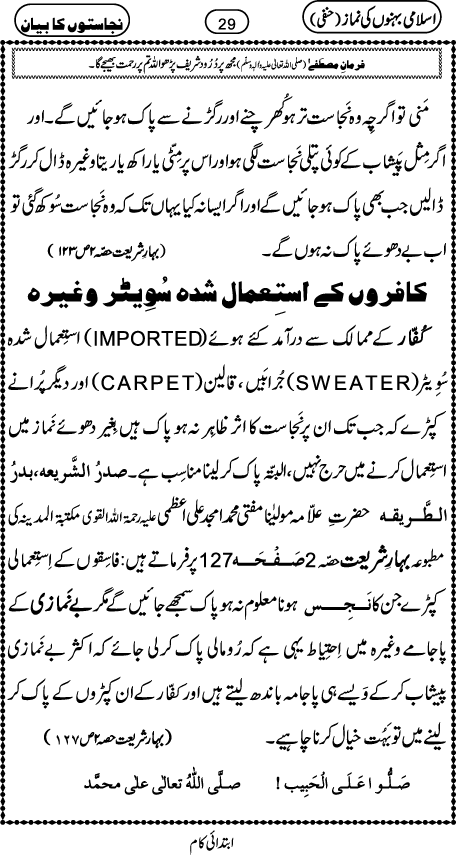 اسلامی بہنوں کی نماز (حنفی)
29
نجاستوں کا بیان
فرمانِ مصطفےٰ (صلی اللہ تعالیٰ علیہ والہ وسلم) مجھ پر دُرُود شریف پڑھو اللہ تم پر رحمت بھیجے گا۔
مَنی تو اگرچہ وہ نَجاست تر ہو کُھرچنے اور رگڑنے سے پاک ہو جائیں گے۔ اور
اگر مِثل پَیشاب کے کوئی پتلی نَجاست لگی ہو اور اس پر مِٹّی یا راکھ یا ریتا وغیرہ ڈال کر رگڑ
ڈالیں جب بھی پاک ہو جائیں گے اور اگر ایسا نہ کیا یہاں تک کہ وہ نَجاست سُوکھ گئی تو
اب بے دھوئے پاک نہ ہوں گے۔ (بہارِ شریعت حصّہ ۲ ص ۱۲۳)
کافروں کے استِعمال شدہ سُوِیٹر وغیرہ
کُفّار کے ممالک سے درآمد کئے ہوئے (IMPORTED) استِعمال شدہ
سُوِیٹر (SWEATER) جُرابَیں، قالین (CARPET) اور دیگر پُرانے
کپڑے کہ جب تک ان پر نَجاست کا اثر ظاہِر نہ ہو پاک ہیں بِغیر دھوئے نَماز میں
استِعمال کرنے میں حَرج نہیں، البتّہ پاک کر لینا مناسِب ہے۔ صدرُ الشَّریعہ، بدرُ
الطَّریقہ حضرتِ علّامہ مولیٰنا مفتی محمد امجد علی اعظمی علیہ رحمۃ اللہ القوی مکتبۃ المدینہ کی
مطبوعہ بہارِ شریعت حصّہ 2 صَفْحَہ 127 پر فرماتے ہیں: فاسِقوں کے اِستِعمالی
کپڑے جن کا نَجِس ہونا معلوم نہ ہو پاک سمجھے جائیں گے مگر بے نَمازی کے
پاجامے وغیرہ میں اِحتِیاط یہی ہے کہ رُومالی پاک کر لی جائے کہ اکثر بے نَمازی
پیشاب کر کے وَیسے ہی پاجامہ باندھ لیتے ہیں اور کفّار کے ان کپڑوں کے پاک کر
لینے میں تو بَہُت خیال کرنا چاہیے۔ (بہارِ شریعت حصّہ ۲ ص ۱۲۷)
صَلُّوا عَلَی الْحَبِیب! صلَّی اللہُ تعالٰی علٰی محمَّد
ابتدائی کام